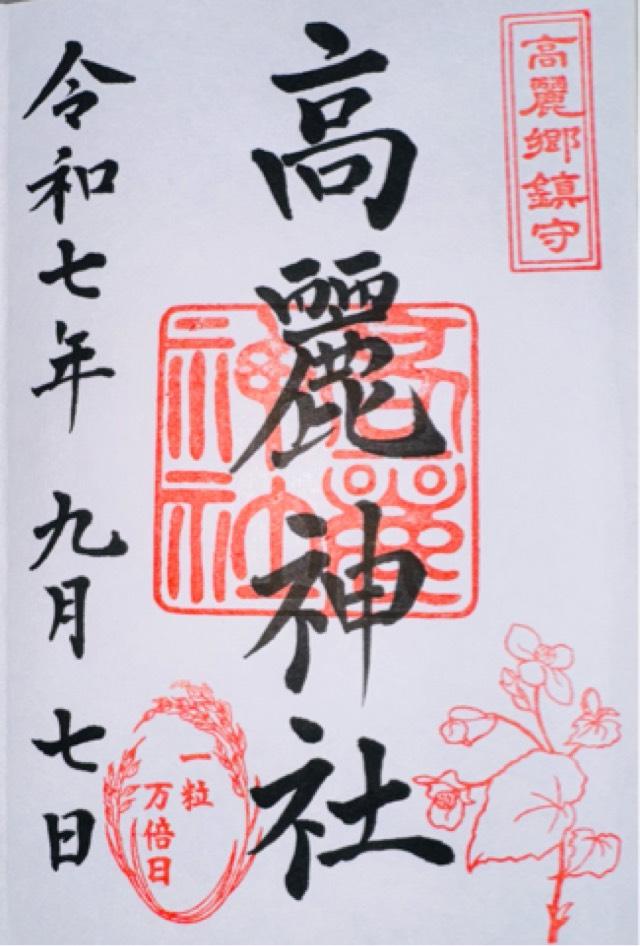 高麗郷鎮守
高麗神社
高麗神社
一粒
万倍日
令和七年 九月 七日